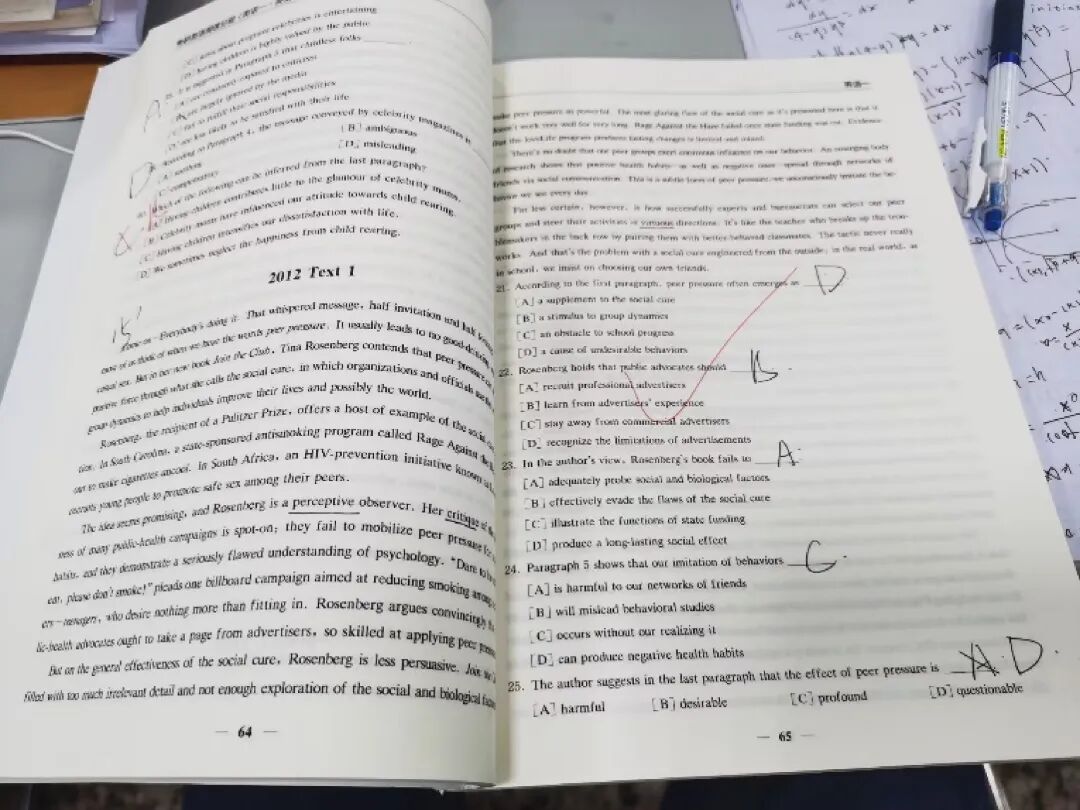 [C] news about pregnant celebrities is entertaining
[D] having children is highly valued by the public
25. It is suggested in Paragraph 3 that childless folks
[A] are constantly exposed to criticism
[B] are largely ignored by the media
[C] fail to fulfill their social responsibilities
[D] are less likely to be satisfied with their life
According to Paragraph 4, the message conveyed by celebrity magazines is
[A] soothing [B] ambiguous
[C] compensatory [D] misleading
Which of the following can be inferred from the last paragraph?
[A] Having children contributes little to the glamour of celebrity moms.
[B] Celebrity moms have influenced our attitude towards child rearing.
[C] Having children intensifies our dissatisfaction with life.
[D] We sometimes neglect the happiness from child rearing.
A
D
2012 Text 1
15'
Come on—Everybody's doing it. That whispered message, half invitation and half
most of us think of when we hear the words peer pressure. It usually leads to no good—drinking,
casual sex. But in her new book Join the Club, Tina Rosenberg contends that peer pressure can
positive force through what she calls the social cure, in which organizations and officials use the
group dynamics to help individuals improve their lives and possibly the world.
Rosenberg, the recipient of a Pulitzer Prize, offers a host of example of the social
tion. In South Carolina, a state-sponsored antismoking program called Rage Against the
out to make cigarettes uncool. In South Africa, an HIV-prevention initiative known as
recruits young people to promote safe sex among their peers.
The idea seems promising, and Rosenberg is a perceptive observer. Her critique of the
ness of many public-health campaigns is spot-on: they fail to mobilize peer pressure for
habits, and they demonstrate a seriously flawed understanding of psychology. "Dare to be
ent, please don't smoke!" pleads one billboard campaign aimed at reducing smoking among
ers—teenagers, who desire nothing more than fitting in. Rosenberg argues convincingly
lic-health advocates ought to take a page from advertisers, so skilled at applying peer pressure.
But on the general effectiveness of the social cure, Rosenberg is less persuasive. Join the
filled with too much irrelevant detail and not enough exploration of the social and biological factors
— 64 —
英语一
make peer pressure so powerful. The most glaring flaw of the social cure as it's presented here is that it
doesn't work very well for very long. Rage Against the Haze failed once state funding was cut. Evidence
that the LoveLife program produces lasting changes is limited and mixed.
There's no doubt that our peer groups exert enormous influence on our behavior. An emerging body
of research shows that positive health habits—as well as negative ones—spread through networks of
friends via social communication. This is a subtle form of peer pressure: we unconsciously imitate the be-
havior we see every day.
Far less certain, however, is how successfully experts and bureaucrats can select our peer
groups and steer their activities in virtuous directions. It's like the teacher who breaks up the trou-
blemakers in the back row by pairing them with better-behaved classmates. The tactic never really
works. And that's the problem with a social cure engineered from the outside: in the real world, as
in school, we insist on choosing our own friends.
21. According to the first paragraph, peer pressure often emerges as D
[A] a supplement to the social cure
[B] a stimulus to group dynamics
[C] an obstacle to school progress
[D] a cause of undesirable behaviors
22. Rosenberg holds that public advocates should B.
[A] recruit professional advertisers
[B] learn from advertisers' experience
[C] stay away from commercial advertisers
[D] recognize the limitations of advertisements
23. In the author's view, Rosenberg's book fails to A.
[A] adequately probe social and biological factors
[B] effectively evade the flaws of the social cure
[C] illustrate the functions of state funding
[D] produce a long-lasting social effect
24. Paragraph 5 shows that our imitation of behaviors C.
[A] is harmful to our networks of friends
[B] will mislead behavioral studies
[C] occurs without our realizing it
[D] can produce negative health habits
25. The author suggests in the last paragraph that the effect of peer pressure is A. D.
[A] harmful [B] desirable [C] profound [D] questionable
— 65 —